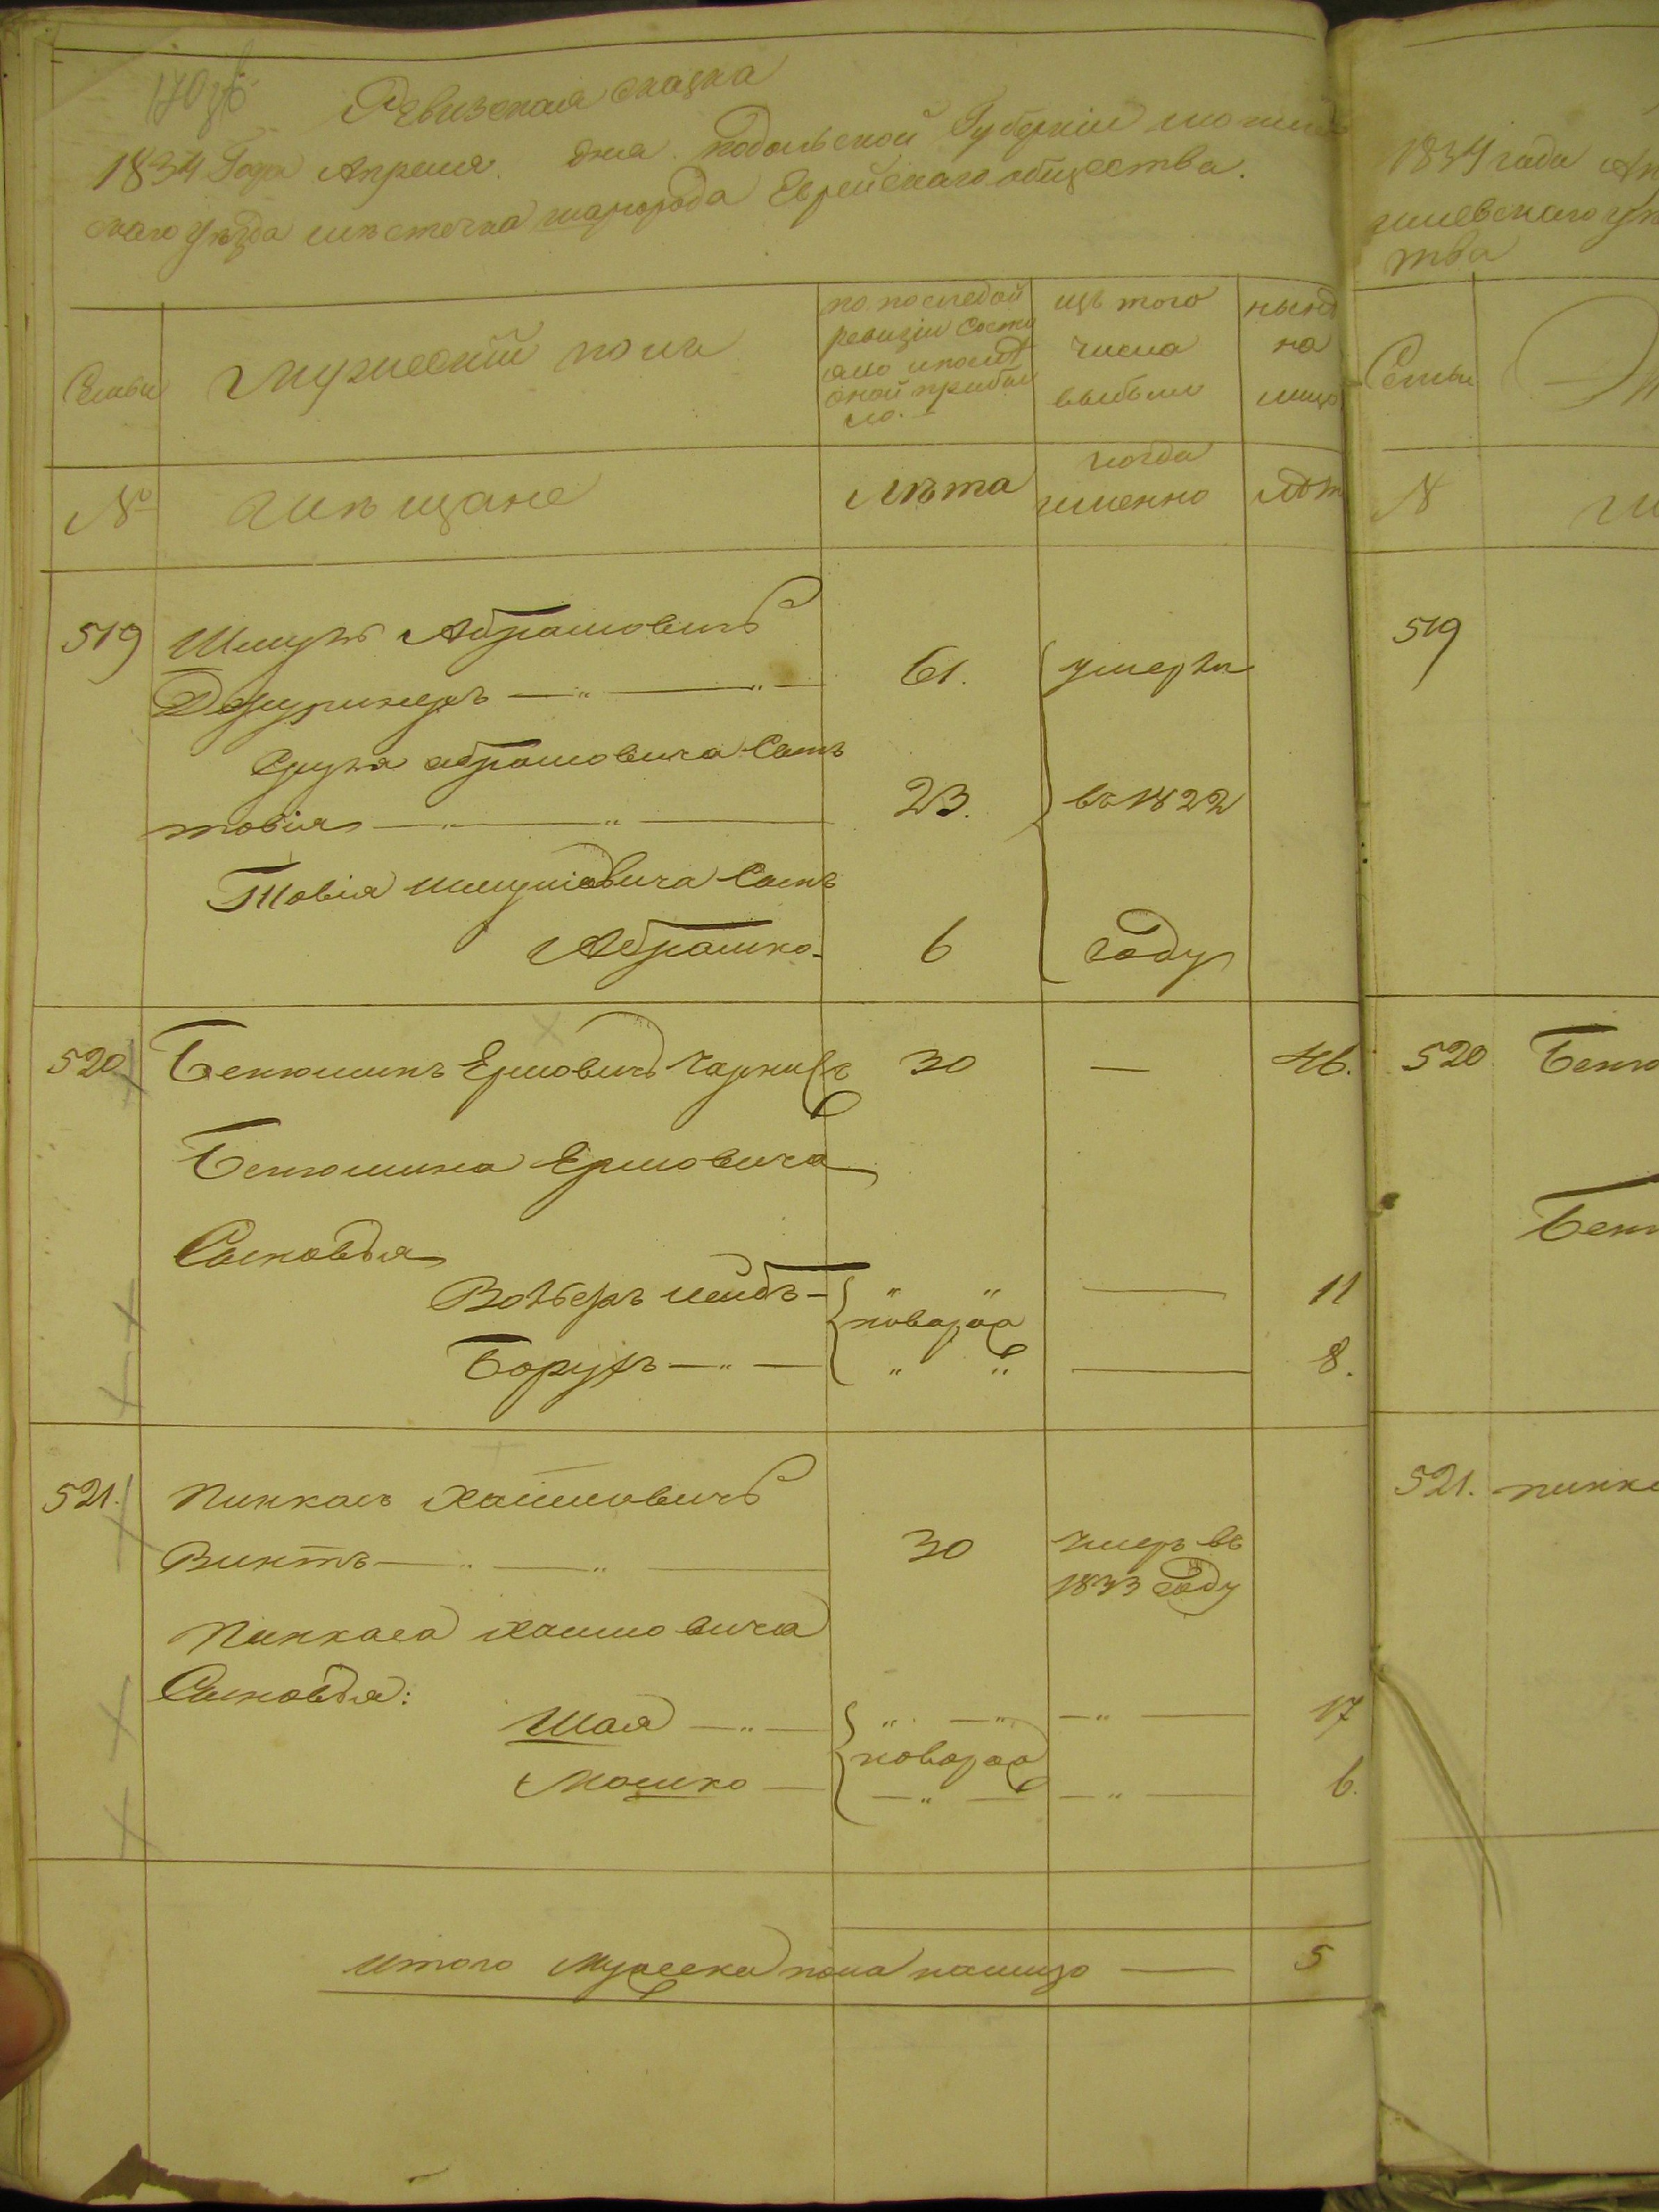 Ревизская сказка
1834 Года Апреля дня Подольской Губернии могилев
скаго уѣзда мѣстечка шаргорода Еврейскаго общества.
Семьи
мужеский полъ
по последой
ревизiи состо
яло и послѣ
оной прибы
ло.
изъ того
числа
выбыли
нынѣ
на
лицо
№
мѣщане
лѣта
когда
именно
лѣт
519 Шмуль Абрамовичъ
61. умерли
абрамовича Сынъ
товiя 23. въ 1822
Товiя шмулiовича Сынъ
Абрашко 6 году
520 Бенюминъ Ершовичъ 30 — 46.
Бенюмина Ершовича
Сыновья
Вольфъ лейбъ — новорож — 11
Борухъ — " — " " — 8.
521. Пинкасъ Хаимовичъ
Винтъ — " — 30 умеръ въ
1833 году
Пинкаса хаимовича
Сыновья:
Шая — " — " — " — " — 17
новорож
Мошко — — " — — " — 6.
Итого мужеска пола налицо — 5
1834 года Ап
гилевскаго уѣ
тва
Семьи
№
519
520 Беню
Бен
521. пинка